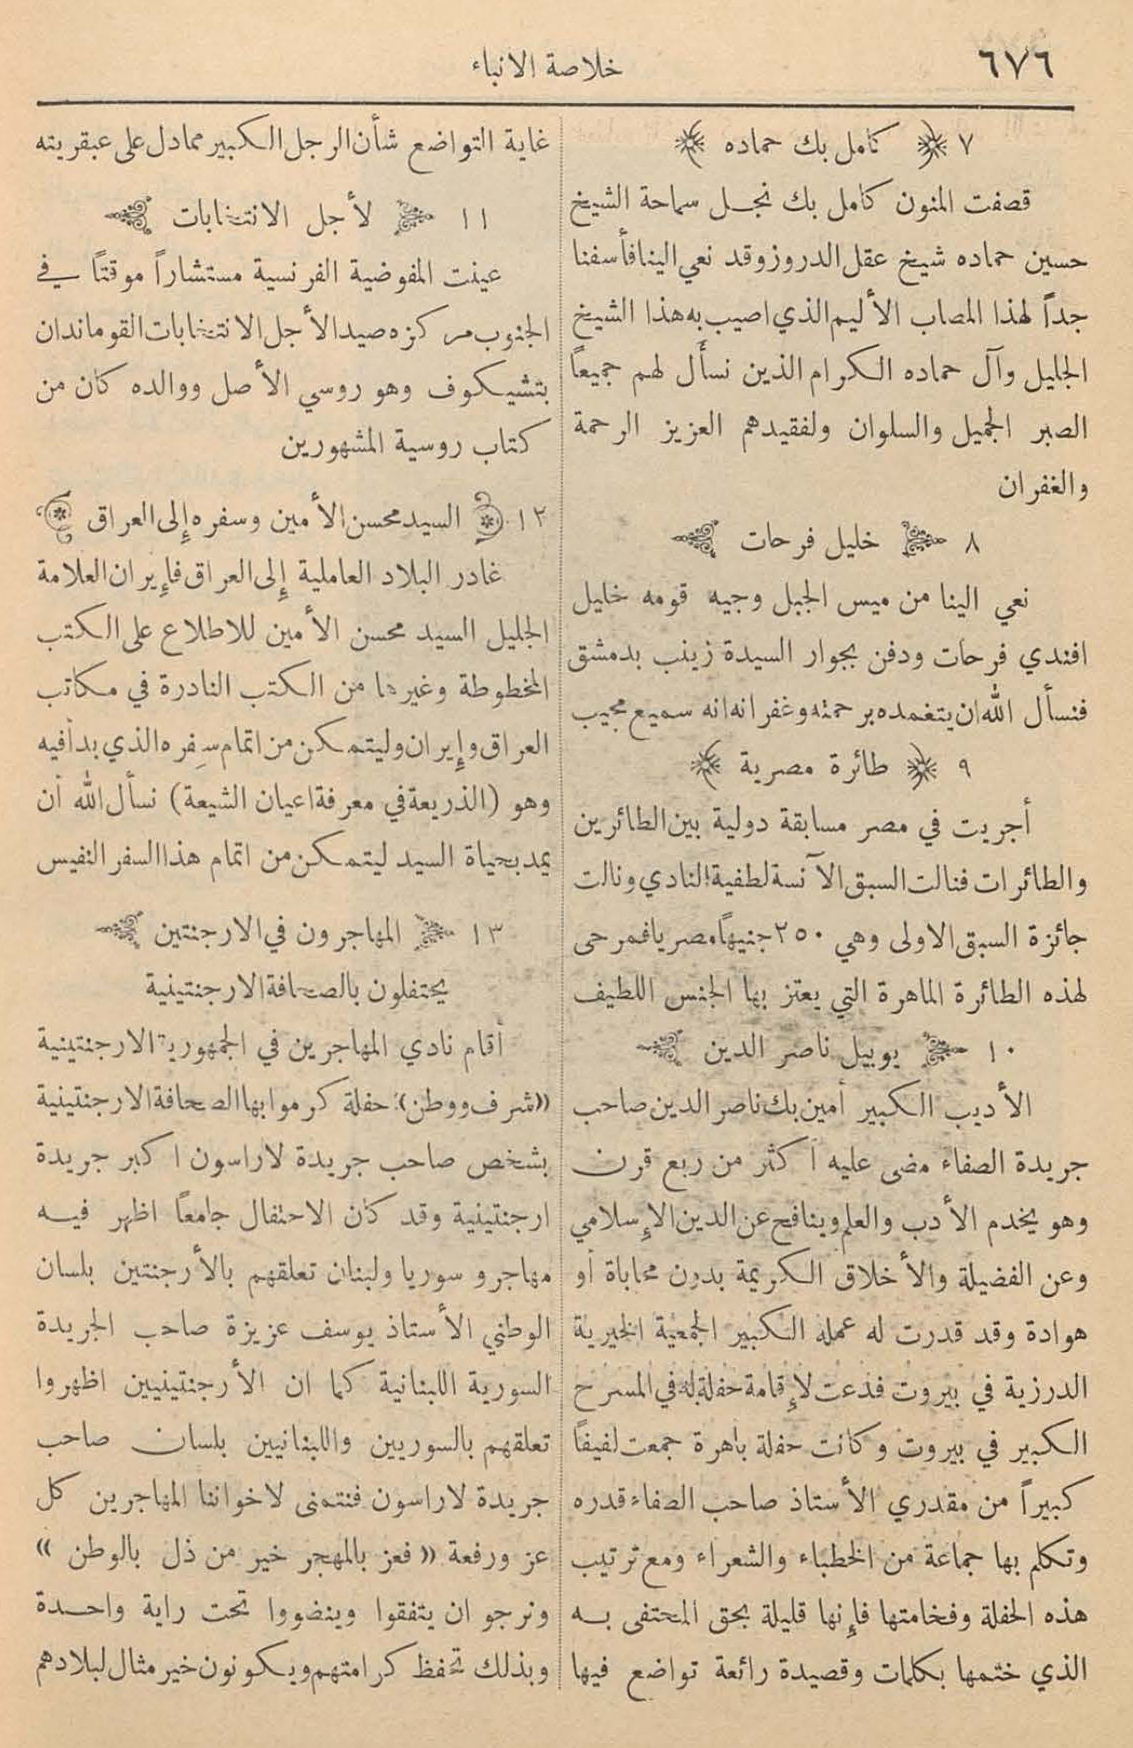 ٦٧٦
خلاصة الانباء
٧ ﴿ كامل بك حماده ﴾
قصفت المنون كامل بك نجل سماحة الشيخ
حسين حماده شيخ عقل الدروز وقد نعي الينا فأسفنا
جداً لهذا المصاب الأليم الذي اصيب به هذا الشيخ
الجليل وآل حماده الكرام الذين نسأل لهم جميعاً
الصبر الجميل والسلوان ولفقيدهم العزيز الرحمة
والغفران
٨ ﴿ خليل فرحات ﴾
نعي الينا من ميس الجبل وجيه قومه خليل
افندي فرحات ودفن بجوار السيدة زينب بدمشق
فنسأل الله ان يتغمده برحمته وغفرانه انه سميع مجيب
٩ ﴿ طائرة مصرية ﴾
أجريت في مصر مسابقة دولية بين الطائرين
والطائرات فنالت السبق الآنسة لطفية النادي ونالت
جائزة السبق الاولى وهي ٢٥٠ جنيهاً مصريا فمرحى
لهذه الطائرة الماهرة التي يعتز بها الجنس اللطيف
١٠ ﴿ يوبيل ناصر الدين ﴾
الأديب الكبير أمين بك ناصر الدين صاحب
جريدة الصفاء مضى عليه اكثر من ربع قرن
وهو يخدم الأدب والعلم وينافح عن الدين الإسلامي
وعن الفضيلة والأخلاق الكريمة بدون محاباة أو
هوادة وقد قدرت له عمله الكبير الجمعية الخيرية
الدرزية في بيروت فدعت لإقامة حفلة له في المسرح
الكبير في بيروت وكانت حفلة باهرة جمعت لفيفاً
كبيراً من مقدري الأستاذ صاحب الصفاء قدره
وتكلم بها جماعة من الخطباء والشعراء ومع ترتيب
هذه الحفلة وفخامتها فإنها قليلة بحق المحتفى به
الذي ختمها بكلمات وقصيدة رائعة تواضع فيها
غاية التواضع شأن الرجل الكبير مما دل على عبقريته
١١ ﴿ لأجل الانتخابات ﴾
عينت المفوضية الفرنسية مستشاراً موقتاً في
الجنوب مركزه صيدا لأجل الانتخابات القوماندان
بتشيكوف وهو روسي الأصل ووالده كان من
كتاب روسية المشهورين
١٢ ﴿ السيد محسن الأمين وسفره إلى العراق ﴾
غادر البلاد العاملية إلى العراق فإيران العلامة
الجليل السيد محسن الأمين للاطلاع على الكتب
المخطوطة وغيرها من الكتب النادرة في مكاتب
العراق وإيران وليتمكن من اتمام سِفره الذي بدأ فيه
وهو (الذريعة في معرفة اعيان الشيعة) نسأل الله أن
يمد بحياة السيد ليتمكن من اتمام هذا السفر النفيس
١٣ ﴿ المهاجرون في الارجنتين ﴾
يحتفلون بالصحافة الارجنتينية
أقام نادي المهاجرين في الجمهورية الارجنتينية
«شرف ووطن» حفلة كرموا بها الصحافة الارجنتينية
بشخص صاحب جريدة لاراسون اكبر جريدة
ارجنتينية وقد كان الاحتفال جامعاً اظهر فيه
مهاجرو سوريا ولبنان تعلقهم بالأرجنتين بلسان
الوطني الأستاذ يوسف عزيزة صاحب الجريدة
السورية اللبنانية كما ان الأرجنتينيين اظهروا
تعلقهم بالسوريين واللبنانيين بلسان صاحب
جريدة لاراسون فنتمنى لاخواننا المهاجرين كل
عز ورفعة « فعز بالمهجر خير من ذل بالوطن »
ونرجو ان يتفقوا وينضووا تحت راية واحدة
وبذلك تحفظ كرامتهم ويكونون خير مثال لبلادهم